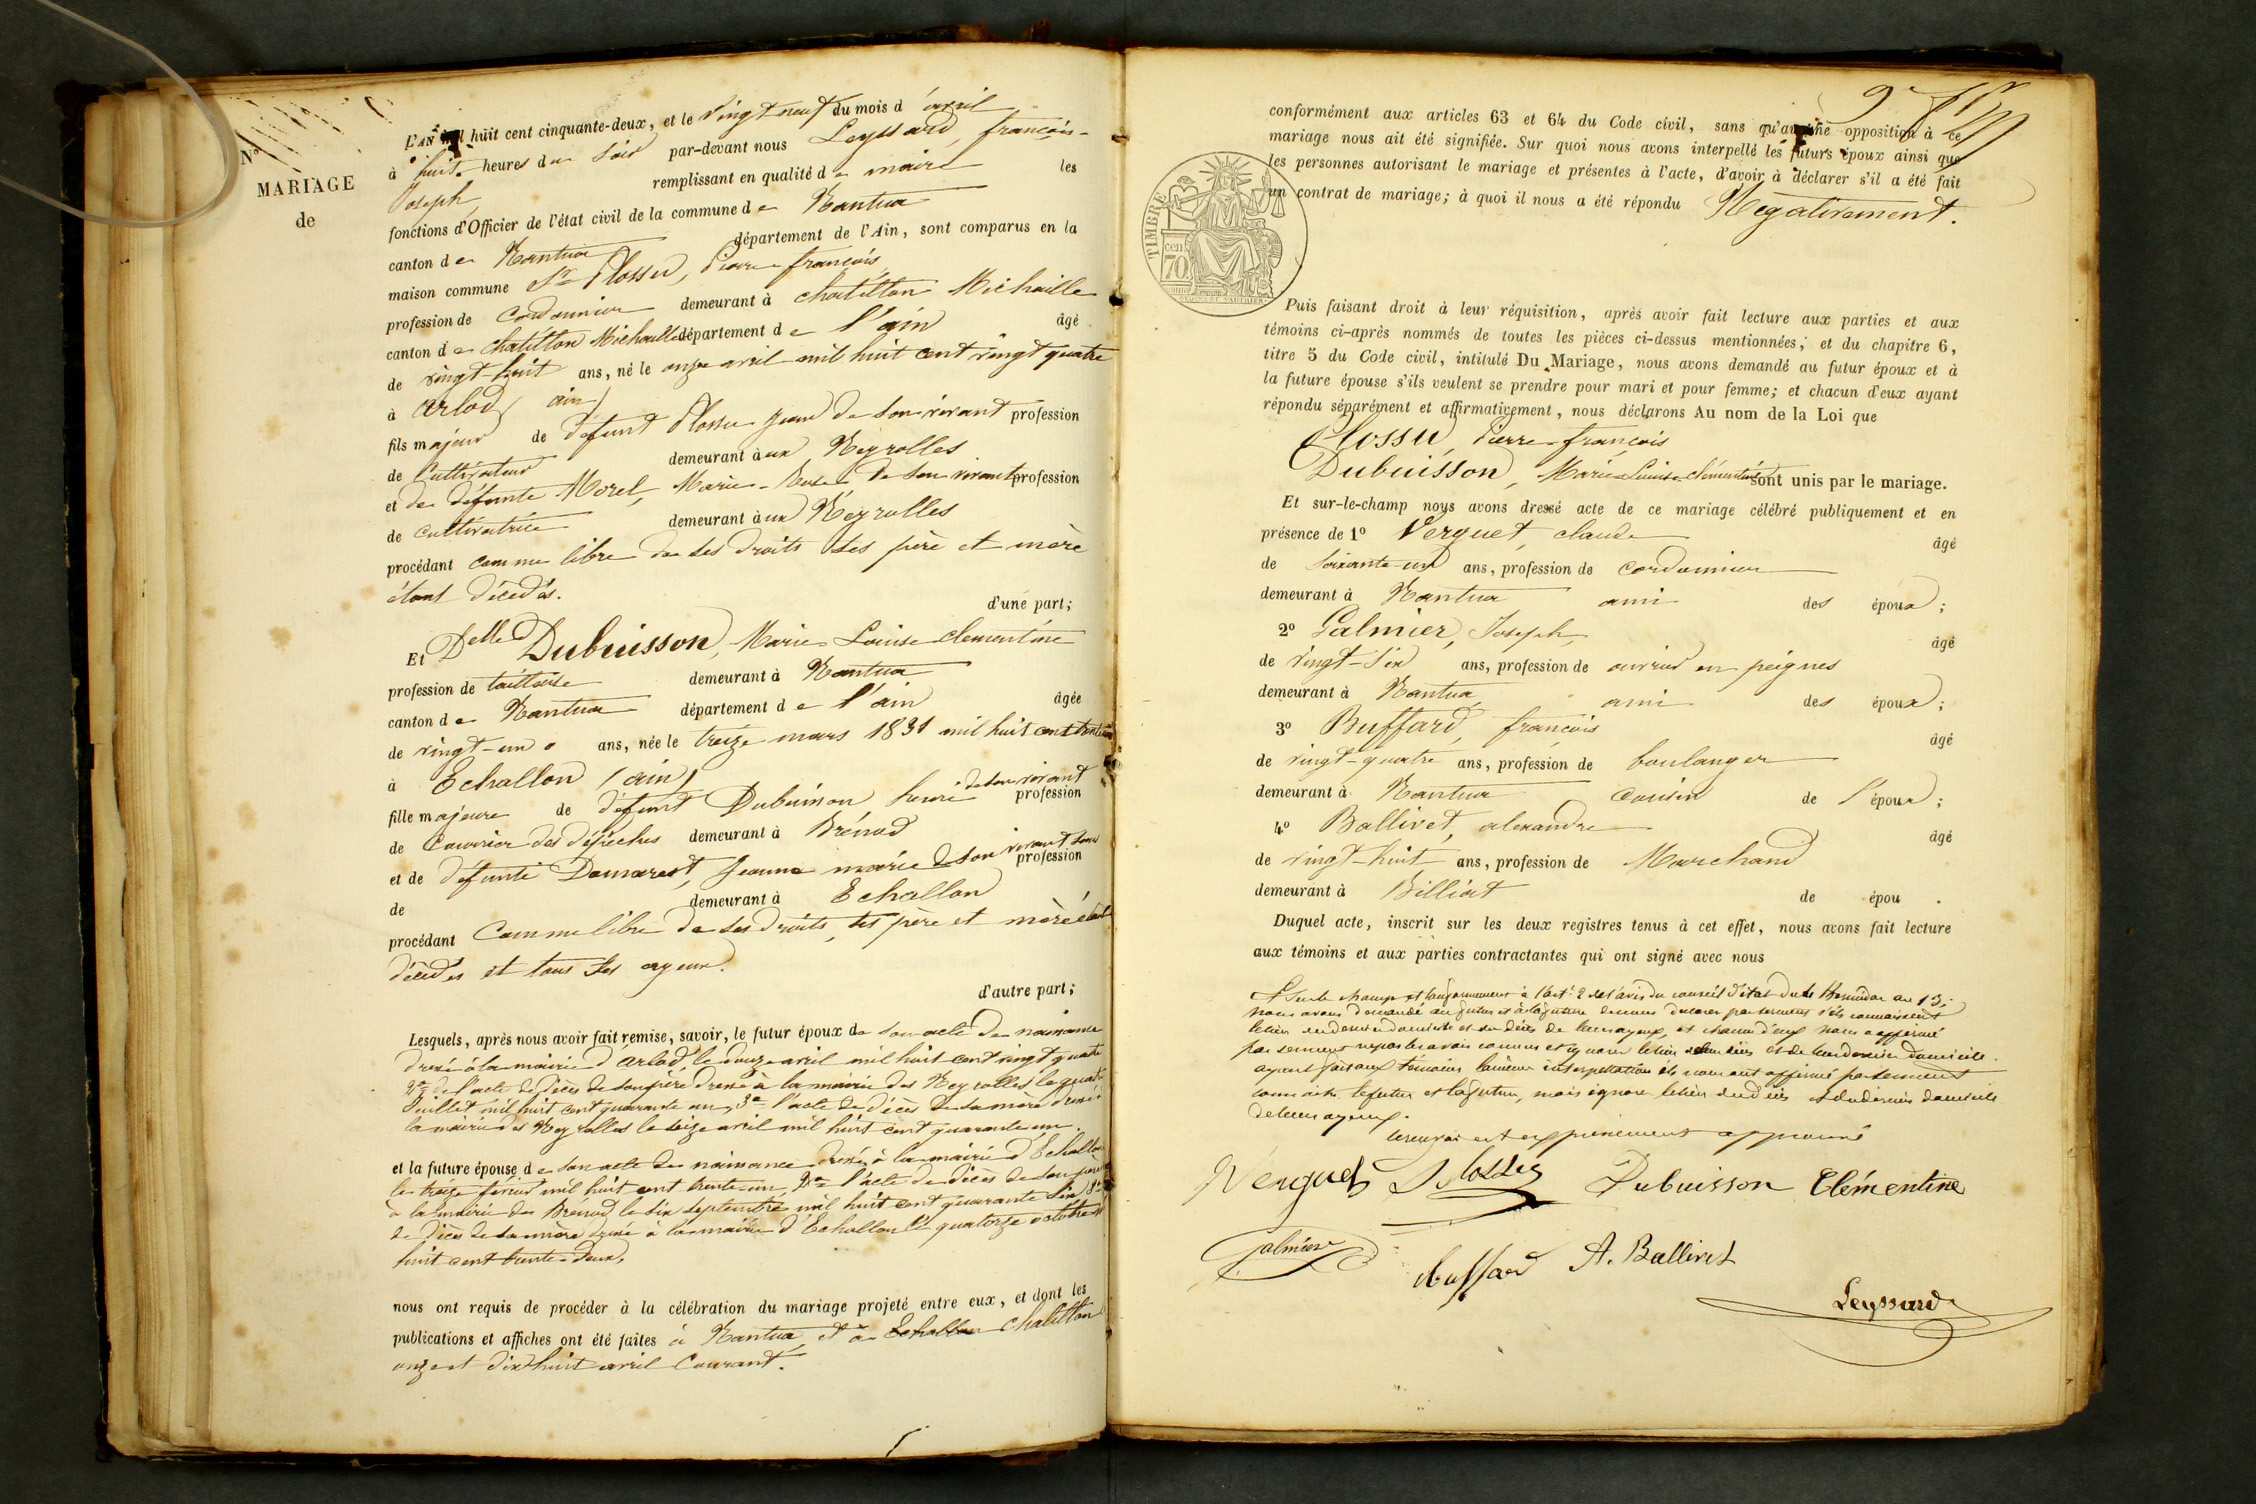 N°
MARIAGE
de
L'AN mil huit cent cinquante-deux, et le vingt neuf du mois d'avril
à huit heures du soir par-devant nous Leyssard, françois-
Joseph remplissant en qualité de maire les
fonctions d'Officier de l'état civil de la commune de Nantua
canton de Nantua département de l'Ain, sont comparus en la
maison commune Sr Plossu, Pierre françois
profession de Cordonnier demeurant à Chatillon Michaille
canton de Chatillon Michaille département de l'ain âgé
de vingt-huit ans, né le onze avril mil huit cent vingt quatre
à arlod (ain)
fils majeur de défunt Plossu Jean de son vivant profession
de Cultivateur demeurant aux Neyrolles
et de défunte Morel, Marie-Rose de son vivant profession
de cultivatrice demeurant aux Neyrolles
procédant comme libre de ses droits ses père et mère
étant décédés.
d'une part;
Et Delle Dubuisson, Marie Louise clementine
profession de tailleuse demeurant à Nantua
canton de Nantua département de l'ain âgée
de vingt-un ans, née le treize mars 1831 mil huit cent trente un
à Echallon (ain)
fille majeure de défunt Dubuisson henri de son vivant profession
de Courrier des dépêches demeurant à Brénod
et de défunte Demarest, Jeanne marie de son vivant sans profession
de demeurant à Echallon
procédant Comme libre de ses droits, ses père et mère étant
décédés et tous ses ayeux.
d'autre part;
Lesquels, après nous avoir fait remise, savoir, le futur époux de son acte de naissance
dressé à la mairie d'Arlod le douze avril mil huit cent vingt quatre
2° de l'acte de décès de son père dressé à la mairie des Neyrolles le quatre
Juillet mil huit cent quarante un, 3° l'acte de décès de sa mère dressé à
la mairie des Neyrolles le seize avril mil huit cent quarante un.
et la future épouse de son acte de naissance dressé à la mairie d'Echallon
le treize février mil huit cent trente-un 2° l'acte de décès de son père
à la mairie de Brénod le six septembre mil huit cent quarante six,
de décès de sa mère dressé à la mairie d'Echallon le quatorze octobre mil
huit cent trente-deux,
nous ont requis de procéder à la célébration du mariage projeté entre eux, et dont les
publications et affiches ont été faites à Nantua et à Echallon Chatillon
onze et dix huit avril Courant.
conformément aux articles 63 et 64 du Code civil, sans qu'aucune opposition à ce
mariage nous ait été signifiée. Sur quoi nous avons interpellé les futurs époux ainsi que
les personnes autorisant le mariage et présentes à l'acte, d'avoir à déclarer s'il a été fait
un contrat de mariage; à quoi il nous a été répondu Négativement.
TIMBRE
cen
70
Puis faisant droit à leur réquisition, après avoir fait lecture aux parties et aux
témoins ci-après nommés de toutes les pièces ci-dessus mentionnées, et du chapitre 6,
titre 5 du Code civil, intitulé Du Mariage, nous avons demandé au futur époux et à
la future épouse s'ils veulent se prendre pour mari et pour femme; et chacun d'eux ayant
répondu séparément et affirmativement, nous déclarons Au nom de la Loi que
Plossu, Pierre-françois
Dubuisson, Marie Louise clémentine sont unis par le mariage.
Et sur-le-champ nous avons dressé acte de ce mariage célébré publiquement et en
présence de 1° Verguet, claude âgé
de soixante-un ans, profession de cordonnier
demeurant à Nantua ami des époux;
2° Galmier, Joseph, âgé
de vingt-six ans, profession de ouvrier en peignes
demeurant à Nantua ami des époux;
3° Buffard, françois âgé
de vingt-quatre ans, profession de boulanger
demeurant à Nantua Cousin de l'époux;
4° Ballivet, alexandre âgé
de vingt-huit ans, profession de Marchand
demeurant à Billiat de épou .
Duquel acte, inscrit sur les deux registres tenus à cet effet, nous avons fait lecture
aux témoins et aux parties contractantes qui ont signé avec nous
Et sur le champ et conformément à l'art. 2 de l'avis du conseil d'état du 4 thermidor an 13,
nous avons demandé au futur et à la future de nous déclarer par serment s'ils connaissent
le lieu du dernier domicile et du décès de leurs ayeux, et chacun d'eux nous a affirmé
par serment ne pas les avoir connus et ignorer le lieu de leur décès et de leur dernier domicile.
ayant fait aux témoins la même interpellation ils nous ont affirmé par serment
connaitre le futur et la future, mais ignorer le lieu du décès et du dernier domicile
de leurs ayeux.
est expressément approuvé
Verguet Plossu Dubuisson Clémentine
Galmier
Buffard A. Ballivet
Leyssard